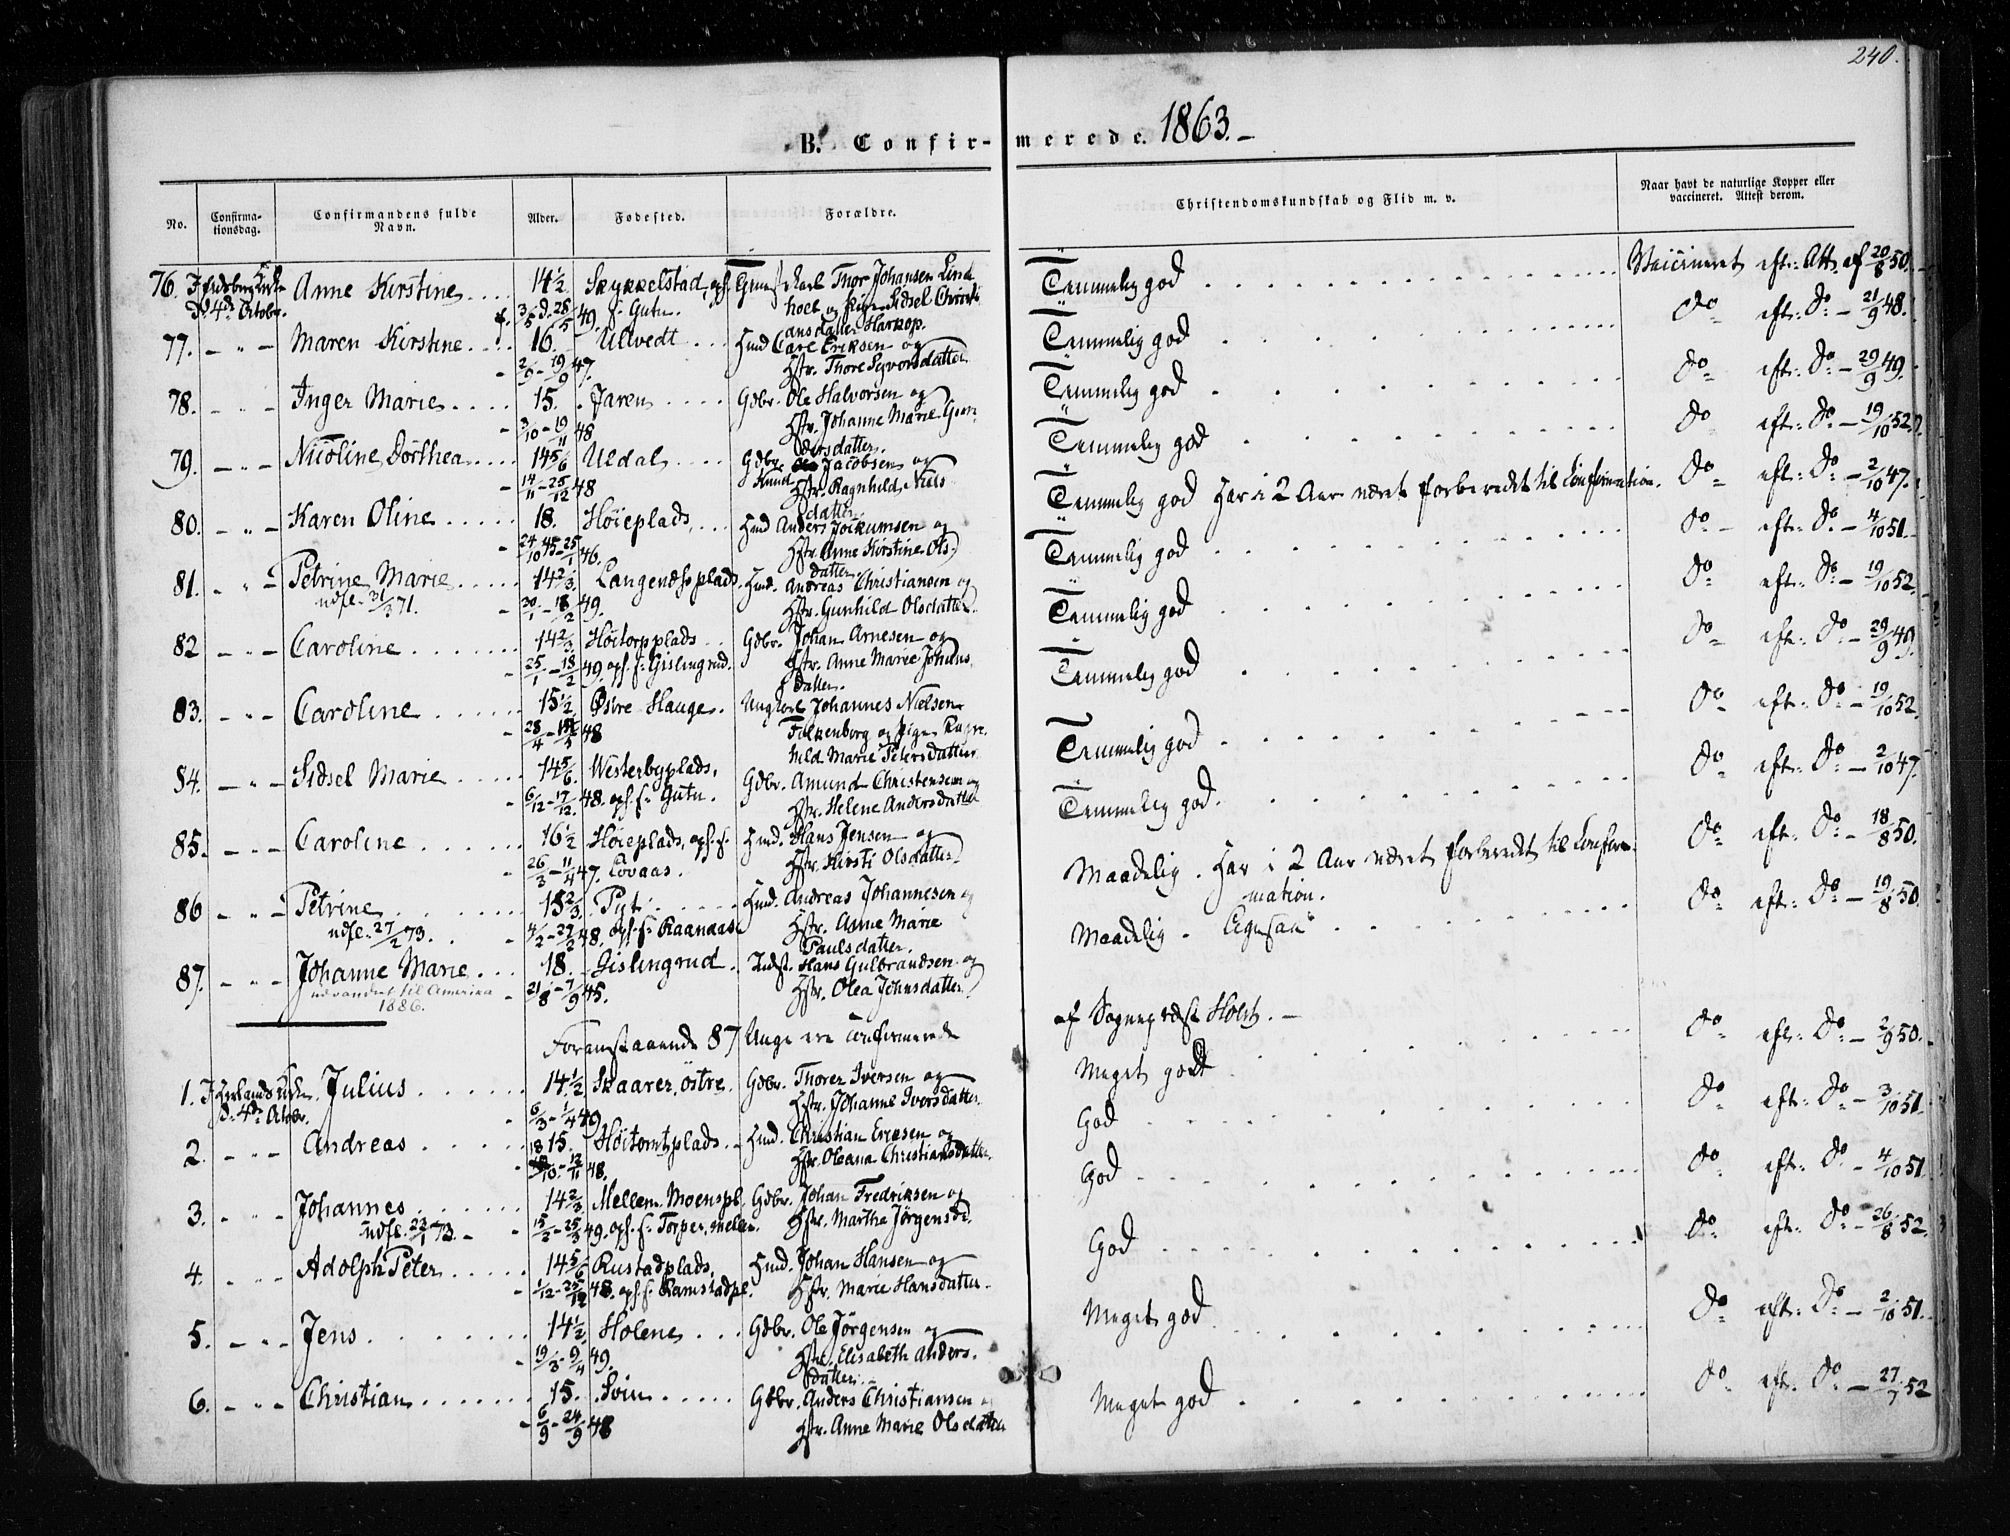 240.
B. Confir- merede. 1863.
No. Confirma- tionsdag. Confirmandens fulde Navn. Alder. Fødested. Forældre. Christendomskundskab og Flid m. v. Naar havt de naturlige Kopper eller vaccineret. Attest derom.
76. Anne Kirstine 14 1/2 Skykkelstad, Thor Johansen Temmelig god Vaccineret eft: Att. af 20/8 50.
d. 4de Octobr. 3/5 d. 28/5 49. Gutu. og Pige Sidsel Christi
ansdatter Harkop.
77. - " - Maren Kirstine 16. Ulvedt Huusmd Carl Eriksen og Temmelig god do eft: do - 21/9 48.
2/9 - 19/9 47. Hstr. Thore Syvorsdatter
78. - " - Inger Marie 15. Jaren Gdbr. Ole Halvorsen og Temmelig god do eft: do - 29/9 49.
3/10 - 19/11 48 Hstr. Johanne Marie Gun
dersdatter.
79. - " - Nicoline Dorthea 14 5/6 Uldal Gdbr. Jacobsen og Temmelig god do eft: do - 19/10 52.
14/11 - 25/12 48 Knud Hstr. Ragnhild Niels
datter.
80. - " - Karen Oline 18. Høieplads Hmd Anders Jockumsen og Temmelig god Har i 2 Aar været forberedet til Confirmation. do eft: do - 2/10 47.
24/10 45 - 25/1 46. Hstr. Anne Kirstine Ols
datter.
81. - " - Petrine Marie 14 2/3 Langenæsplads Hmd. Andreas Christiansen og Temmelig god do - eft: do - 4/10 51.
udfl. 31/3 71. 30/1 - 18/2 49. Hstr. Gunhild Olsdatter.
82 - " - Caroline 14 2/3 Høitorpplads Gdbr. Johan Arnesen og Temmelig god do eft: do - 19/10 52.
25/1 - 18/2 49. opf. f: Gislingrud. Hstr. Anne Marie Johans
datter.
83. - " - Caroline 15 1/2 Østre Hauge. Ungkarl Johannes Nielsen Temmelig god do eft: do - 29/9 49.
28/4 48 Falkenborg og Pige Ragn
hild Marie Petersdatter
84. - " - Sidsel Marie 14 5/6 Westerbyplads, Gdbr. Amund Christensen og Temmelig god do eft: do - 19/10 52.
6/12 - 17/12 48. opf. f: Gutu. Hstr. Helene Andersdatter
85. - " - Caroline 16 1/2 Høieplads, opf. f: Hmd. Hans Jensen og Temmelig god. do eft: do - 2/10 47.
26/3 - 11/4 47. Lovaas. Hstr. Kirsti Olsdatter
86 - " - Petrine 15 2/3 Pyt Hmd. Andreas Johannesen og Maadelig. Har i 2 Aar været forberedet til Confir- do eft: do - 18/8 50.
mation.
udfl. 27/2 73. 4/2 - 27/2 48. opf. f: Raanaas Hstr. Anne Marie
Paulsdatter.
87. - " - Johanne Marie 18. Gislingrud Indst. Hans Gulbrandsen og Maadelig. Ligesaa do eft: do - 19/8 50.
udvandret til Amerika 21/8 - 7/9 45. Hstr. Olea Johnsdatter
1886.
Foranstaaende 87 Unge ere confirmerede af Sognepræst Holst. -
1. Julius 14 1/2 Skaarer, østre. Gdbr. Thorer Iversen og Meget god do eft: do - 2/9 50.
d. 4de Octobr. 6/3 - 1/4 49. Hstr. Johanne Iversdatter
2. - " - Andreas 15. Høitomtplads Hmd. Christian Ericsen og God do eft: do - 3/10 51.
18/10 - 12/11 48. Hstr. Oleana Christiansdatter
3. - " - Johannes 14 2/3 Mellem Moenspl. Gdbr. Johan Fredriksen og God do eft: do - 4/10 51.
udfl. 22/1 73. 15/2 - 25/3 49. opf. f: Torper, mellem. Hstr. Marthe Jørgensd.
4. - " - Adolph Peter 14 5/6 Rustadplads, Hmd. Johan Hansen og God do eft: do - 26/8 52.
1/12 - 25/12 48. opf. f: Ramstadpl. Hstr. Marie Hansdatter
5. - " - Jens 14 1/2 Holene Gdbr. Ole Jørgensen og Meget god do eft: do - 2/10 51.
19/3 - 9/4 49. Hstr. Elisabeth Anders-
datter.
6. - " - Christian 15. Svin Gdbr. Anders Christiansen og Meget god do eft: do - 27/7 52
6/9 - 24/9 48 Hstr. Anne Marie Olsdatter